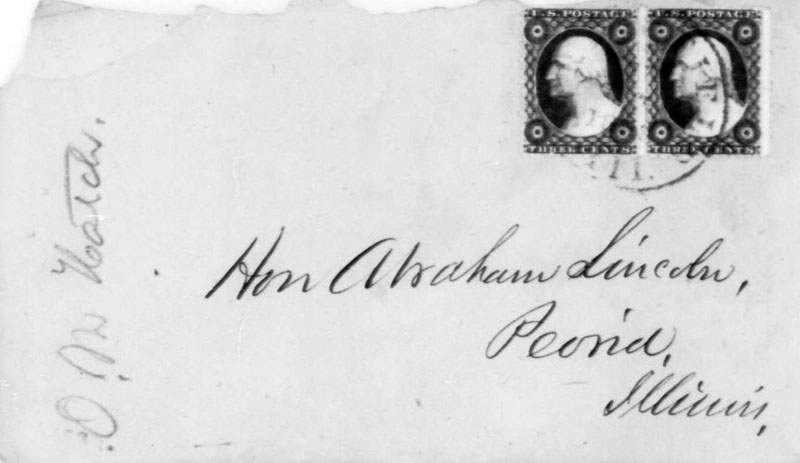 U.S. POSTAGE U.S. POSTAGE
THREE CENTS. THREE CENTS.
ILL.
O. M. Hatch.
Hon Abraham Lincoln,
Peoria,
Illinois,